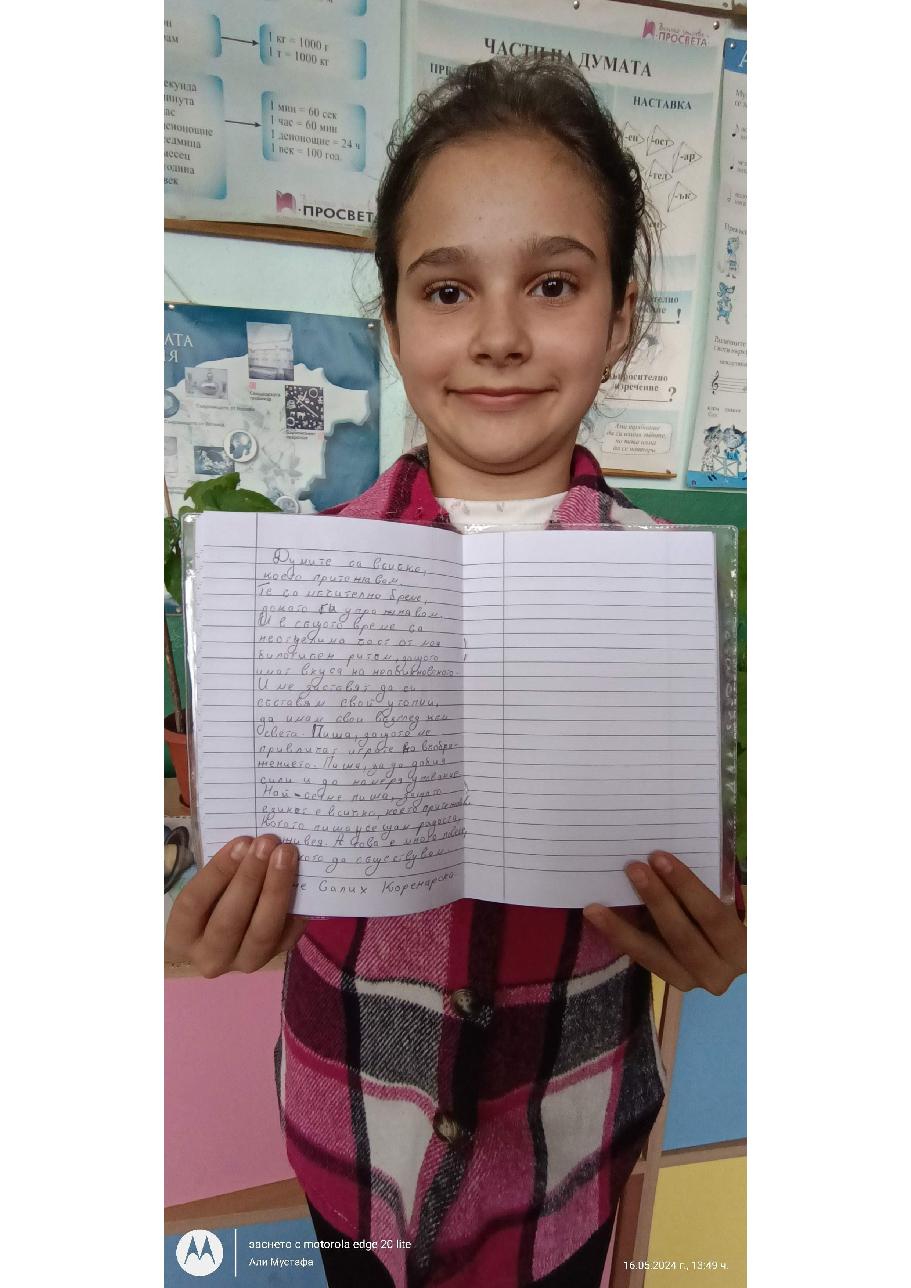 1 кг = 1000 г
1 т = 1000 кг
секунда
минута
час
денонощие
седмица
месец
година
век
1 мин = 60 сек
1 час = 60 мин
1 денонощие = 24 ч
1 век = 100 год.
ПРОСВЕТА
ПРОСВЕТА
ЧАСТИ НА ДУМАТА
НАСТАВКА
-ен
-ост
-ар
-тел
-ък
!
?
Думите са всичко,
което притежавам.
Те са мъчително бреме,
докато ги упражнявам.
И в същото време са
неотделима част от моя
биологичен ритъм, защото
имат вкуса на необикновеното.
И ме заставят да си
съставям свои утопии,
да имам свой възглед към
света. Пиша, защото ме
привличат игрите на въобра-
жението. Пиша, за да добия
сили и да намеря упование
Най-сетне пиша, защото
езикът е всичко, което притежавам
Когато пиша усещам радостта,
живея. А това е много повече,
да съществувам.
Салих Коренарска
заснето с motorola edge 20 lite
Али Мустафа
16.05.2024 г., 13:49 ч.